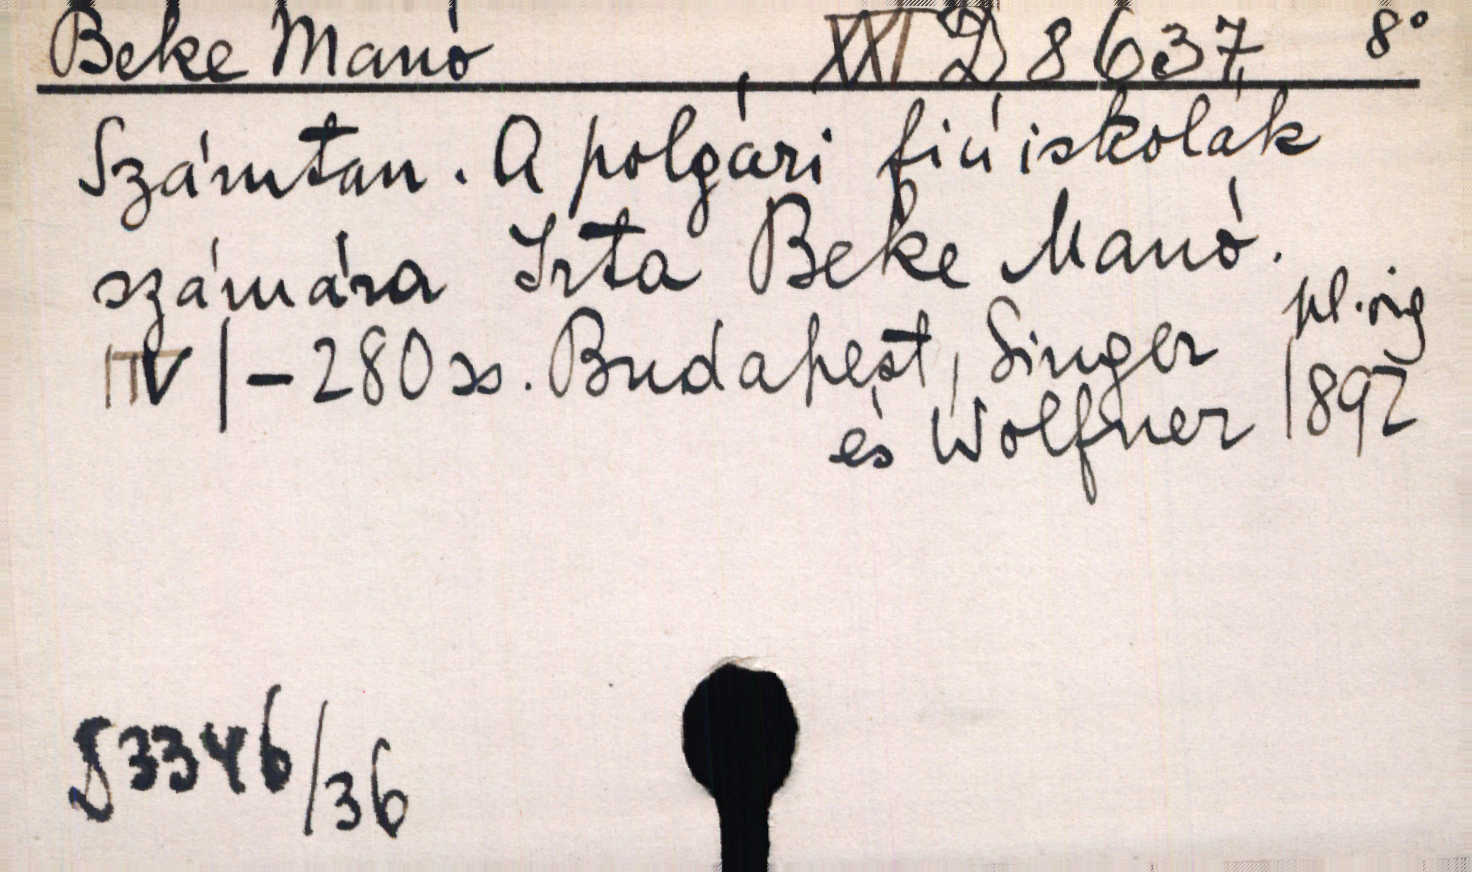 Beke Manó XXI D 8637 8°
Számtan. A polgári fiúiskolák
számára Irta Beke Manó.
IV | – 280 ss. Budapest, Singer pl. orig
és Wolfner 1892
§ 3346/36